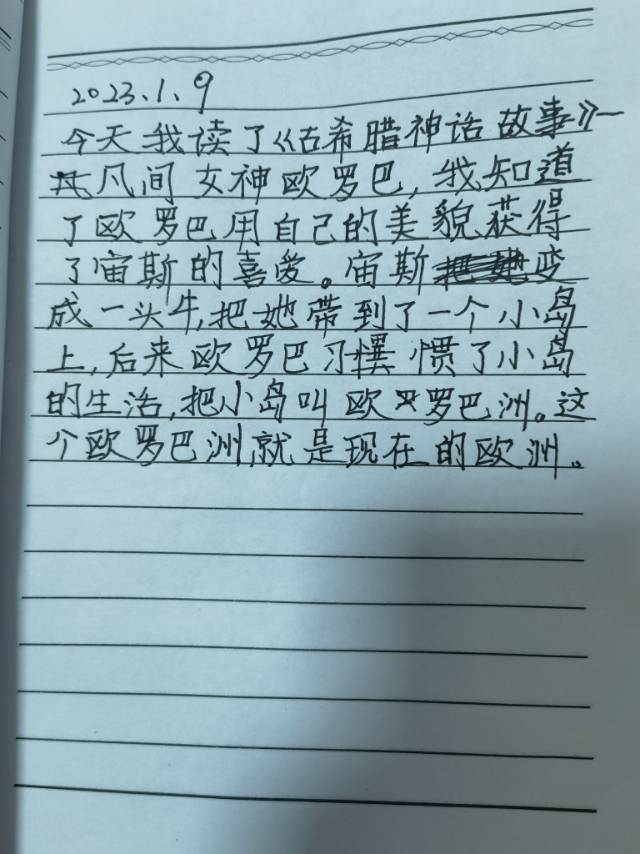 2023.1.9
今天我读了《古希腊神话故事》一
凡间女神欧罗巴,我知道
了欧罗巴用自己的美貌获得
了宙斯的喜爱。宙斯变
成一头牛,把她带到了一个小岛
上,后来欧罗巴习惯了小岛
的生活,把小岛叫欧罗巴洲。这
个欧罗巴洲,就是现在的欧洲。